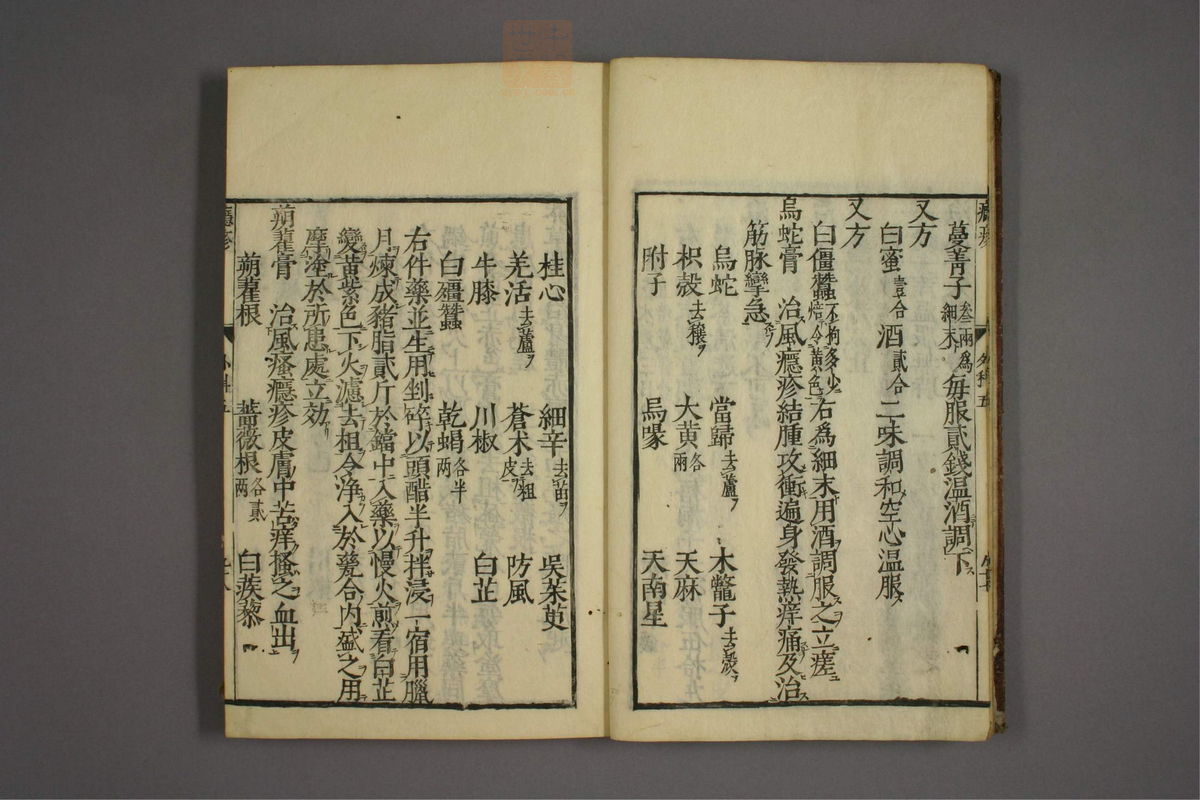 蔓菁子 叁兩為細末 每服貳錢温酒調下ス
又方
白蜜 壹合 酒 貳合 二味調和空心温服
又方
白僵蠶 不拘多少焙令黄色 右為細末用酒調服之立瘥
烏蛇膏 治風癮疹結腫攻衝遍身發熱痒痛及治
筋脉攣急
烏蛇 當歸 去蘆ヲ 木鼈子 去殻ヲ
枳殻 去穰ヲ 大黄 各兩 天麻
附子 烏喙 天南星
桂心 細辛 去苗ヲ 吳茱萸
羌活 去蘆ヲ 蒼朮 去粗皮ヲ 防風
牛膝 川椒 白芷
白殭蠶 乾蝎 各半兩
右件藥並生用剉碎以頭醋半升拌浸一宿用臘
月煉成豬脂貳斤於鐺中入藥以慢火煎看白芷
變黄紫色下火濾去柤令淨入於甆合内盛之用
摩塗於所患處立効
蒴藋膏 治風瘙癮疹皮膚中苦痒搔之血出
蒴藋根 薔薇根 各貳兩 白蒺藜
癮疹 外科五